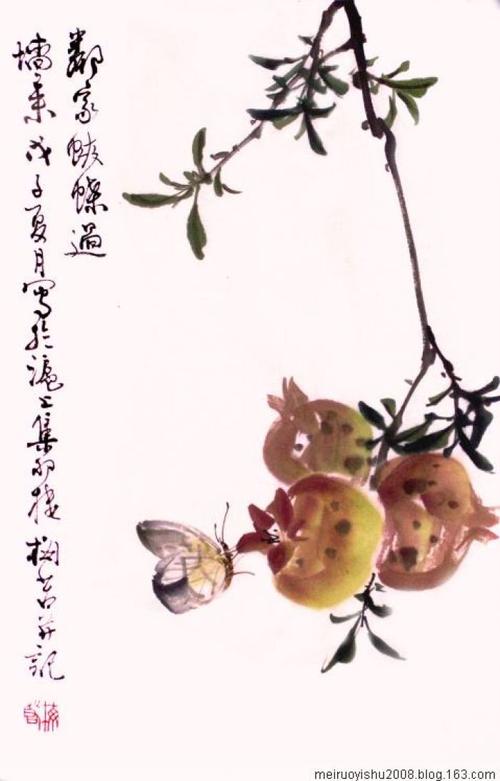 鄰家蛱蝶過
墻来戊子夏月寫於滬上集雨楼梅若并記
meiruoyishu2008.blog.163.com